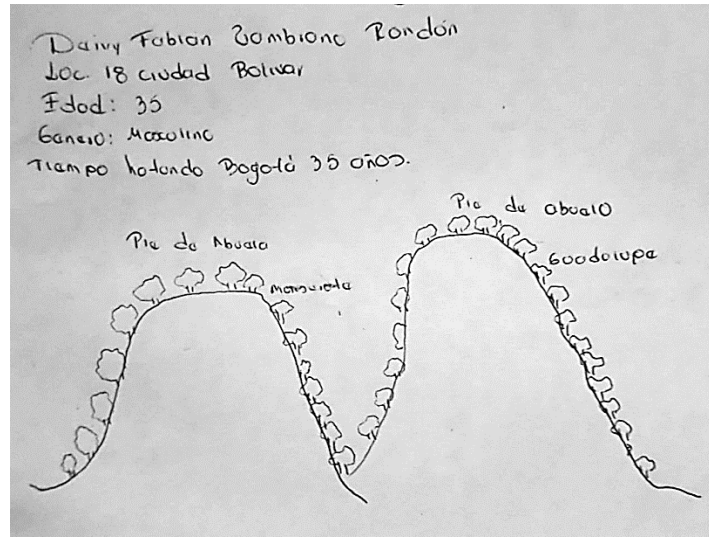 Daivy Fabian Zambrano Rondón
Loc. 18 ciudad Bolivar
Edad: 35
Genero: Masculino
Tiempo habitando Bogotá 35 años.
Pie de abuelo
Pie de Abuela
Guadalupe
Monserrate